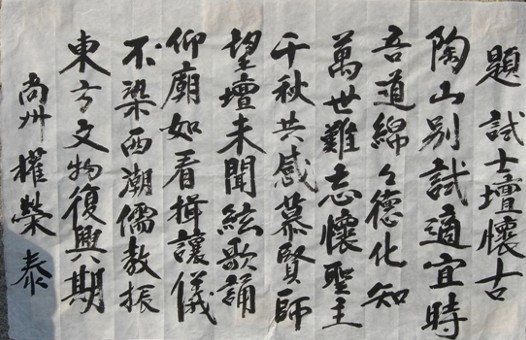 題試士壇懷古
陶山別試適宜時
吾道綿々德化知
萬世難忘懷聖主
千秋共感慕賢師
望壇未聞絃歌誦
仰廟如看揖讓儀
不染西潮儒教振
東方文物復興期
尚州權榮泰